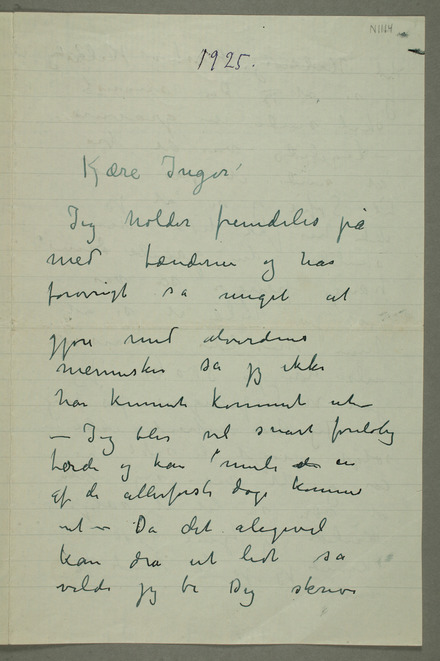 N1124
1925.
Kære Inger!
Jeg holder fremdeles på
med tænderne og har
forøvrigt så meget at
gjøre med alverdens
mennesker så jeg ikke
har kunnet kommet ut
– Jeg blir vel snart foreløbig
færdig og kan en
af de allerførste dage komme
ut – Da det alligevel
kan dra ut lidt så
vilde jeg be Dig skrive